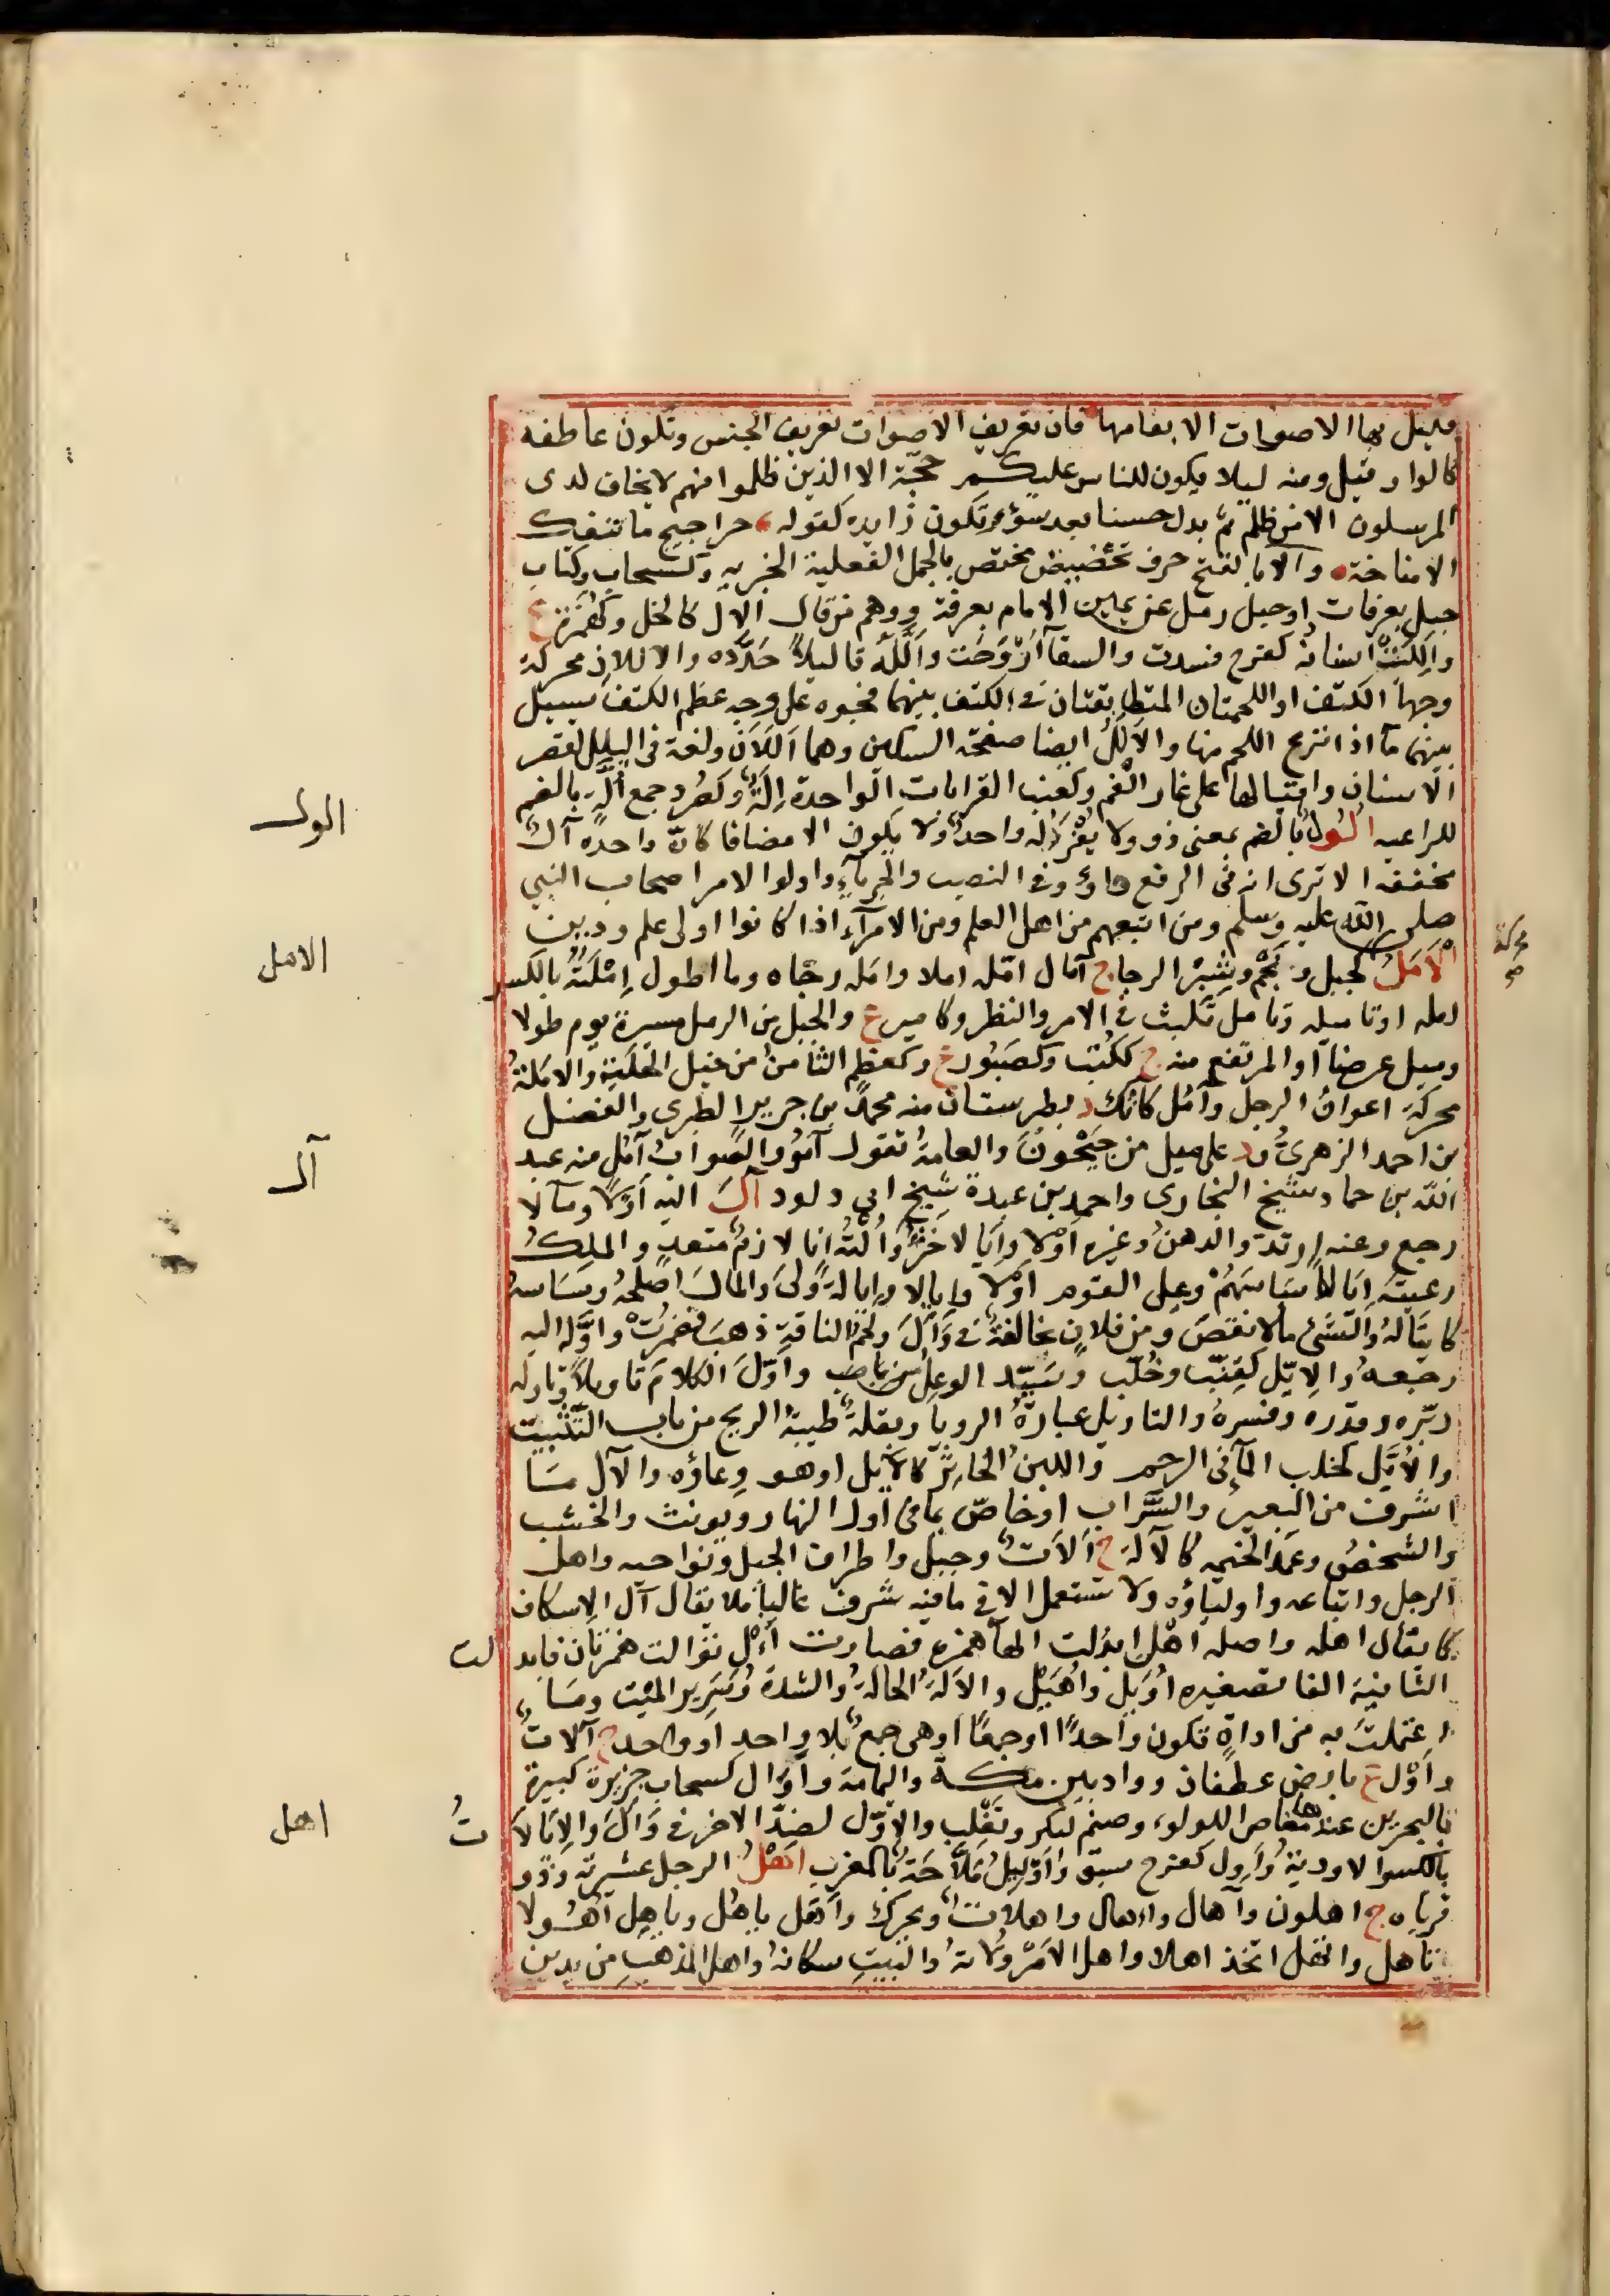 قليل بها الاصوات الا بغامها فان تعريف الاصوات تعريف الجنس وتكون عاطفة
كالواو قيل ومنه ليلا يكون للناس عليكم حجة الا الذين ظلموا منهم لا يخاف لدى
المرسلون الا من ظلم ثم بدل حسنا بعد سوء وتكون زايده كقوله حراجيج ما تنفك
الا مناخة وَألّا بالفتح حرف تحضيض مختص بالجمل الفعلية الخبريه وكسحاب وكتاب
جبل بعرفات او حبل رمل عن يمين الامام بعرفة ووهم من قال الال كالخل وكهُمَزة ع
والِلَت اسنانه كفرح فسدت والسقآ اَرْوَحَت والَّلَه تاليلاً حَدَّده والاللان محركة
وجها الكتف او اللحمتان المتطابقتان في الكتف بينهما فجوه على وجه عظم الكتف يسيل
بينهما مآ اذا نزع اللحم منها والاَلَلُ ايضا صفحة السكين وهما اَللَاَن ولغة في اليلل لقصر
الاسنان واقبالها على غار الفم وكعنب القرابات الواحدة اِلّة وكصُرد جمع اُلّة بالضم
للراعيه اُلُولُ بالضم بمعنى ذوو ولا يُفْرَد له واحد ولا يكون الا مضافا كانّ واحده آل
مخففه الا ترى انه في الرفع واو وفي النصب والجر يآء واولوا الامر اصحاب النبي
صلى الله عليه وسلم ومن اتبعهم من اهل العلم ومن الامرآء اذا كانوا اولى علم ودين
الاَمَلُ كجبل ونَجْم وشِبْر الرجا ج آمال امّله املا وامله رجّاه وما اطول اِمْلَتَهُ بالكسر
امله او تاميله وتامل تلبث في الامر والنظر وكامير ع والحبل من الرمل مسيرة يوم طولا
وميل عرضاً او المرتفع منه ج ككُتب وكصَبُور ع وكمعظم الثامن من خيل الحَلَبَة والاَمَلَةُ
محركة اعوان الرجل وآمُل كآنُك د بطبرستان منه محمد بن جرير الطبري والفضل
بن احمد الزهري ود على ميل من جَيْحُونَ والعامة تقول آمُو والصواب آمُل منه عبد
الله بن حماد شيخ البخاري واحمد بن عبدة شيخ ابي داود آلَ اليه اَوْلاً ومآلا
رجع وعنه ارتد والدهن وغيره اَوْلا واِيَالا خثر واُلْتُه انا لازم متعد والملِكُ
رعيته اِيَالاً سَاسَهُمْ وعلى القوم اَوْلا وايالا وايالة وَلِيَ والمالَ اصلحه وسَاسه
كايتاله والشئ مآلا نقص ومن فلان نجا لغة في وَأَلَ ولحم الناقة ذهب فضمرت واوَّله اليه
رجعه والايّل كقِنّب وخُلّب وسَيّد الوعل من باب واَوّلَ الكلام تاويلاً وتاوله
دبّره وقدره وفسره والتاويل عبارة الرويا وبقلة طيبة الريح من باب التّنْبيت
والأيَّل كخلب المآ في الرحم واللبن الخاثر كالآيل او هو وعاؤه والآل مَا
اشرف من البعير والسَّراب او خاص بما في اول النهار ويونث والخشب
والشخص وعَمَد الخيمه كالآلة ج اَلآت وجبل واطراف الجبل ونواحيه واهل
الرجل واتباعه واولياؤه ولا تستعمل الا في ما فيه شرف غالباً فلا يقال آل الاسكاف
كما يقال اهله واصله اهْل ابدلت الهآ همزة فصارت أَأْل توالت همزتان فابد لت
الثانية الفا تصغيره اُوَيل واُهَيل والآلة الحالة والشدة وسَرير الميت ومَا
اعتملتَ به من اداة تكون واحدًا او جمعًا او هي جمع بلا واحد او واحد ج آلات
واَوْل ع بارض غطفان وواد بين مكة واليمامة واَوَال كسحاب جزيرة كبيرة
بالبحرين عندها مغاص اللولوء وصنم لبكر وتَغْلِب والاوّل لضدّ الاخر في وَأَلَ والاِيَالاَ تُ
بالكسر الاودية واَوِل كفرح سبق واَوْليلُ مَلاّحَة بالمغرب اَهْلُ الرجل عشيرته وذوو
قرباه ج اهلون وآهال واَهال واهلات ويحرك واَهَلَ ياهُل وياهِل اُهُولا
تاهل واتهل اتخذ اهلا واهل الامْر وُلاته والبيتِ سكانه واهل المذهب من يدين
الول
الامل
آل
اهل
محركة صح